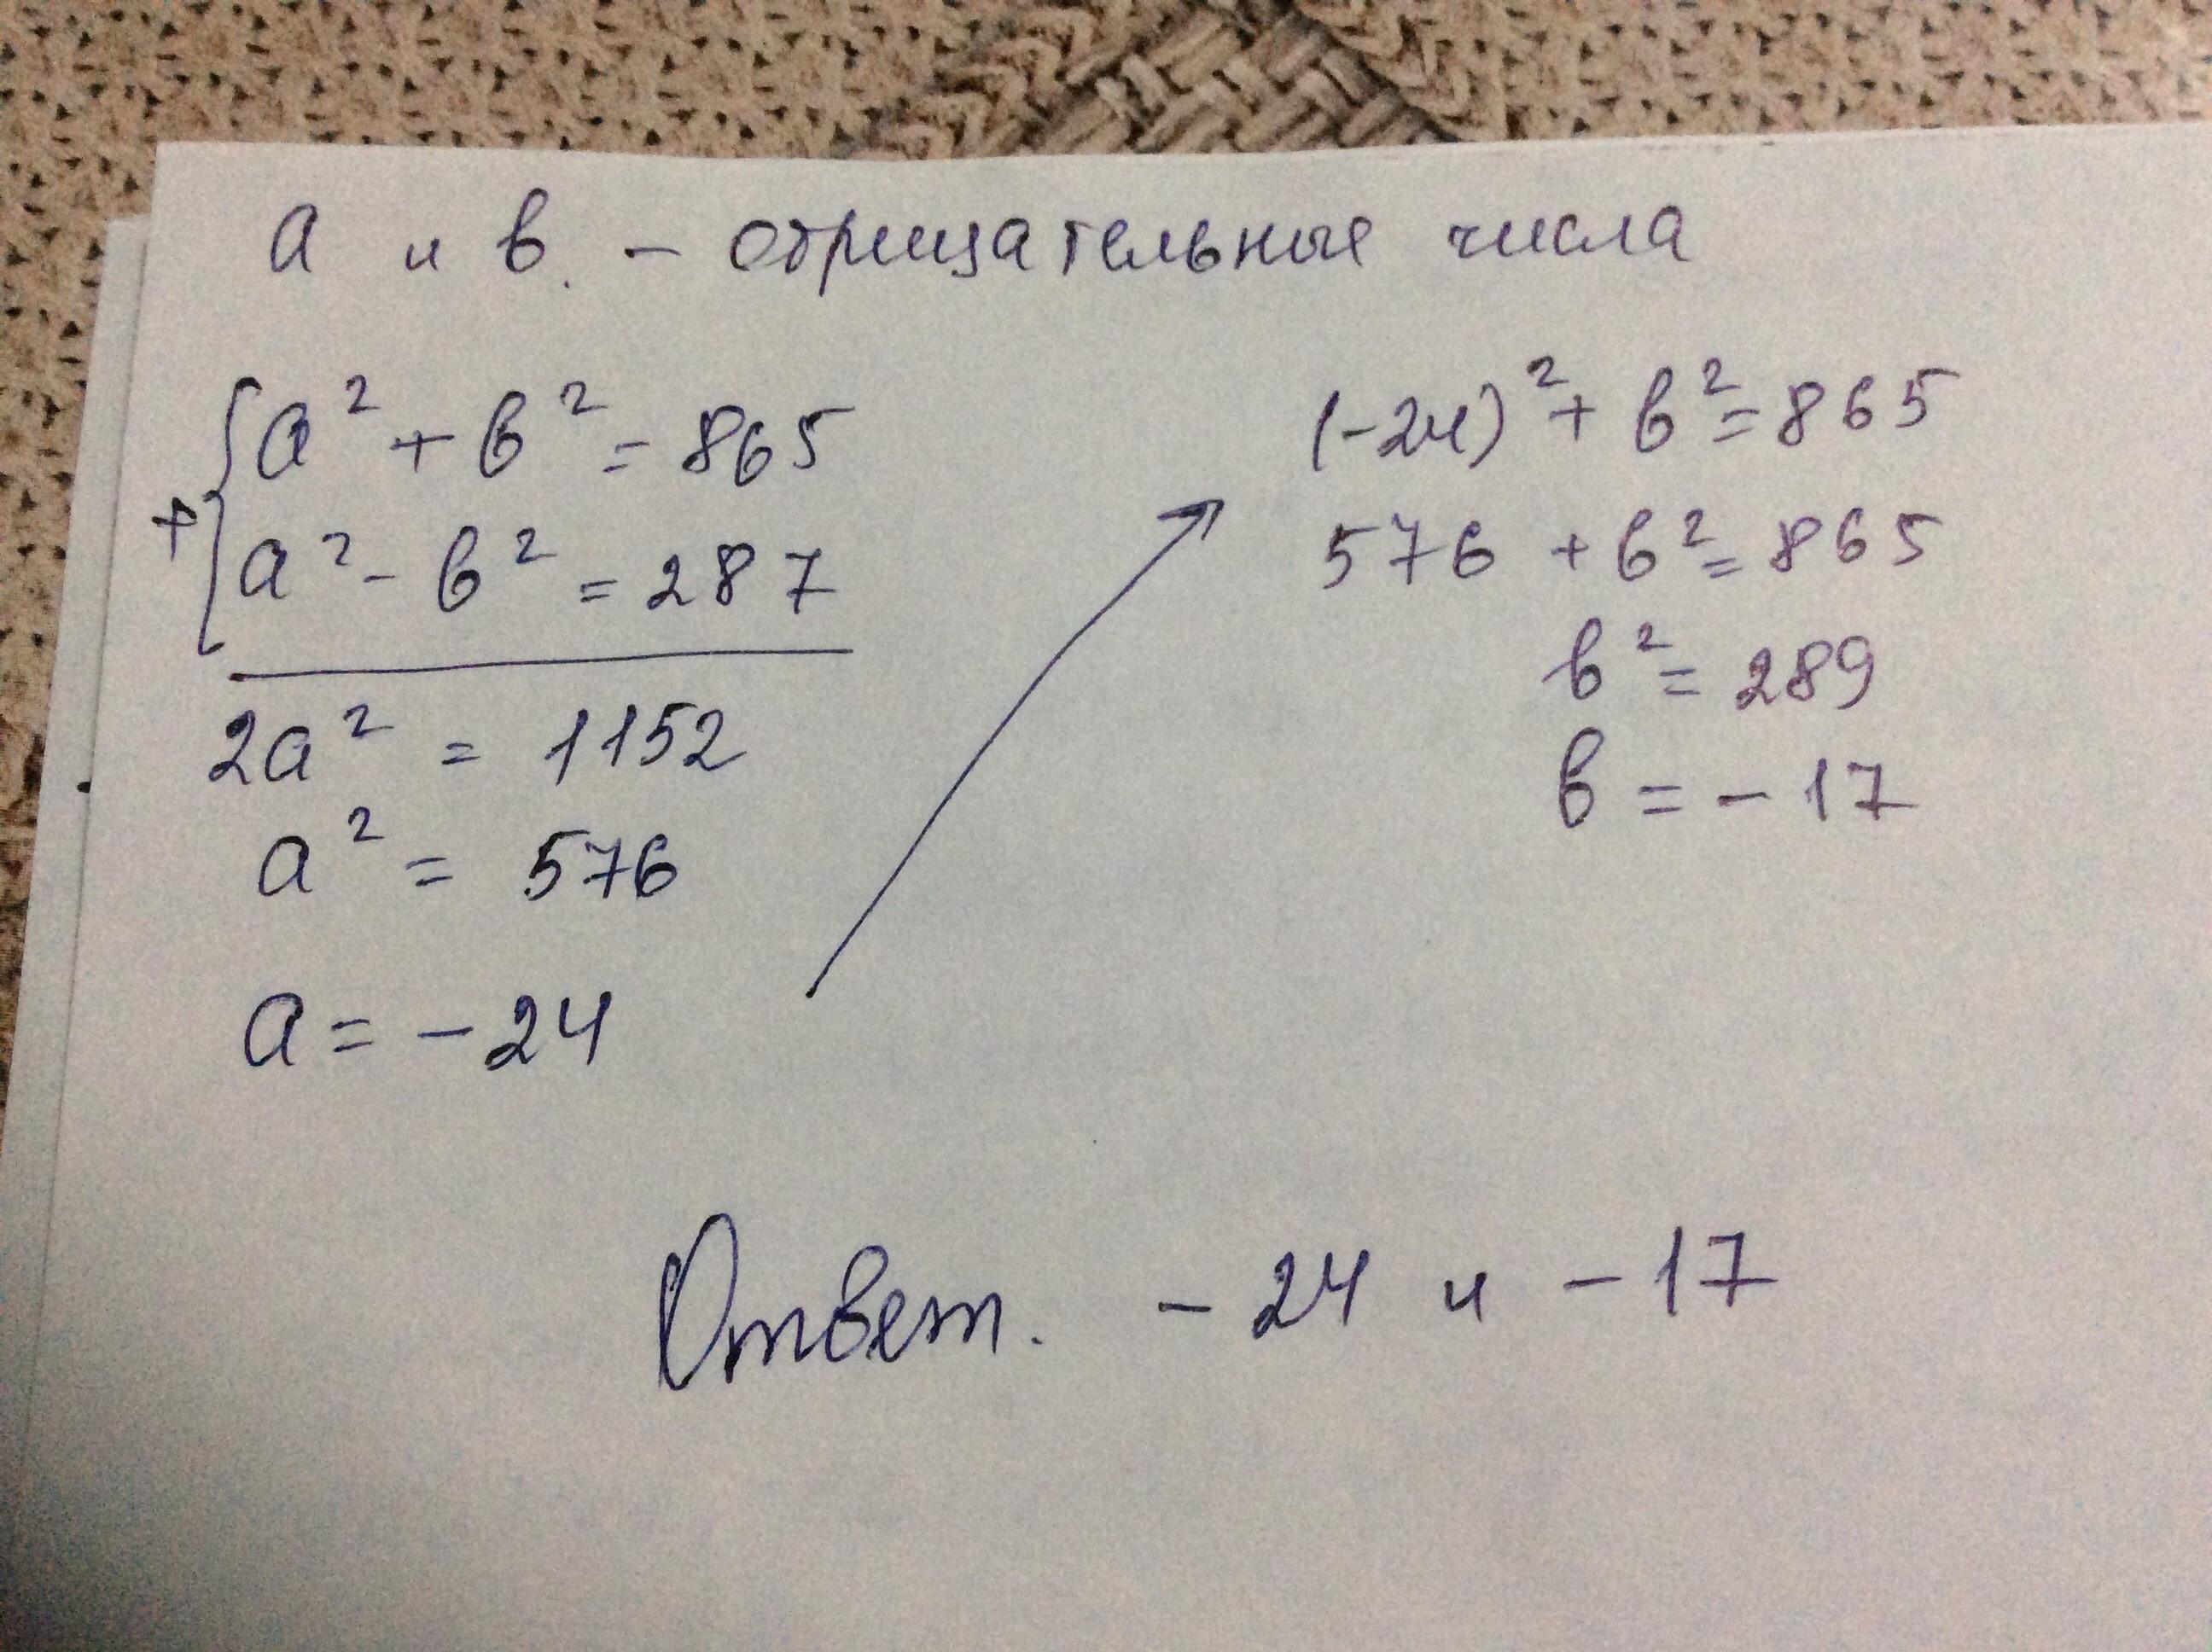 а и в. - отрицательные числа
а² + в² = 865
+
а² - в² = 287
2а² = 1152
а² = 576
а = - 24
(-24)² + в² = 865
576 + в² = 865
в² = 289
в = - 17
Ответ. - 24 и - 17